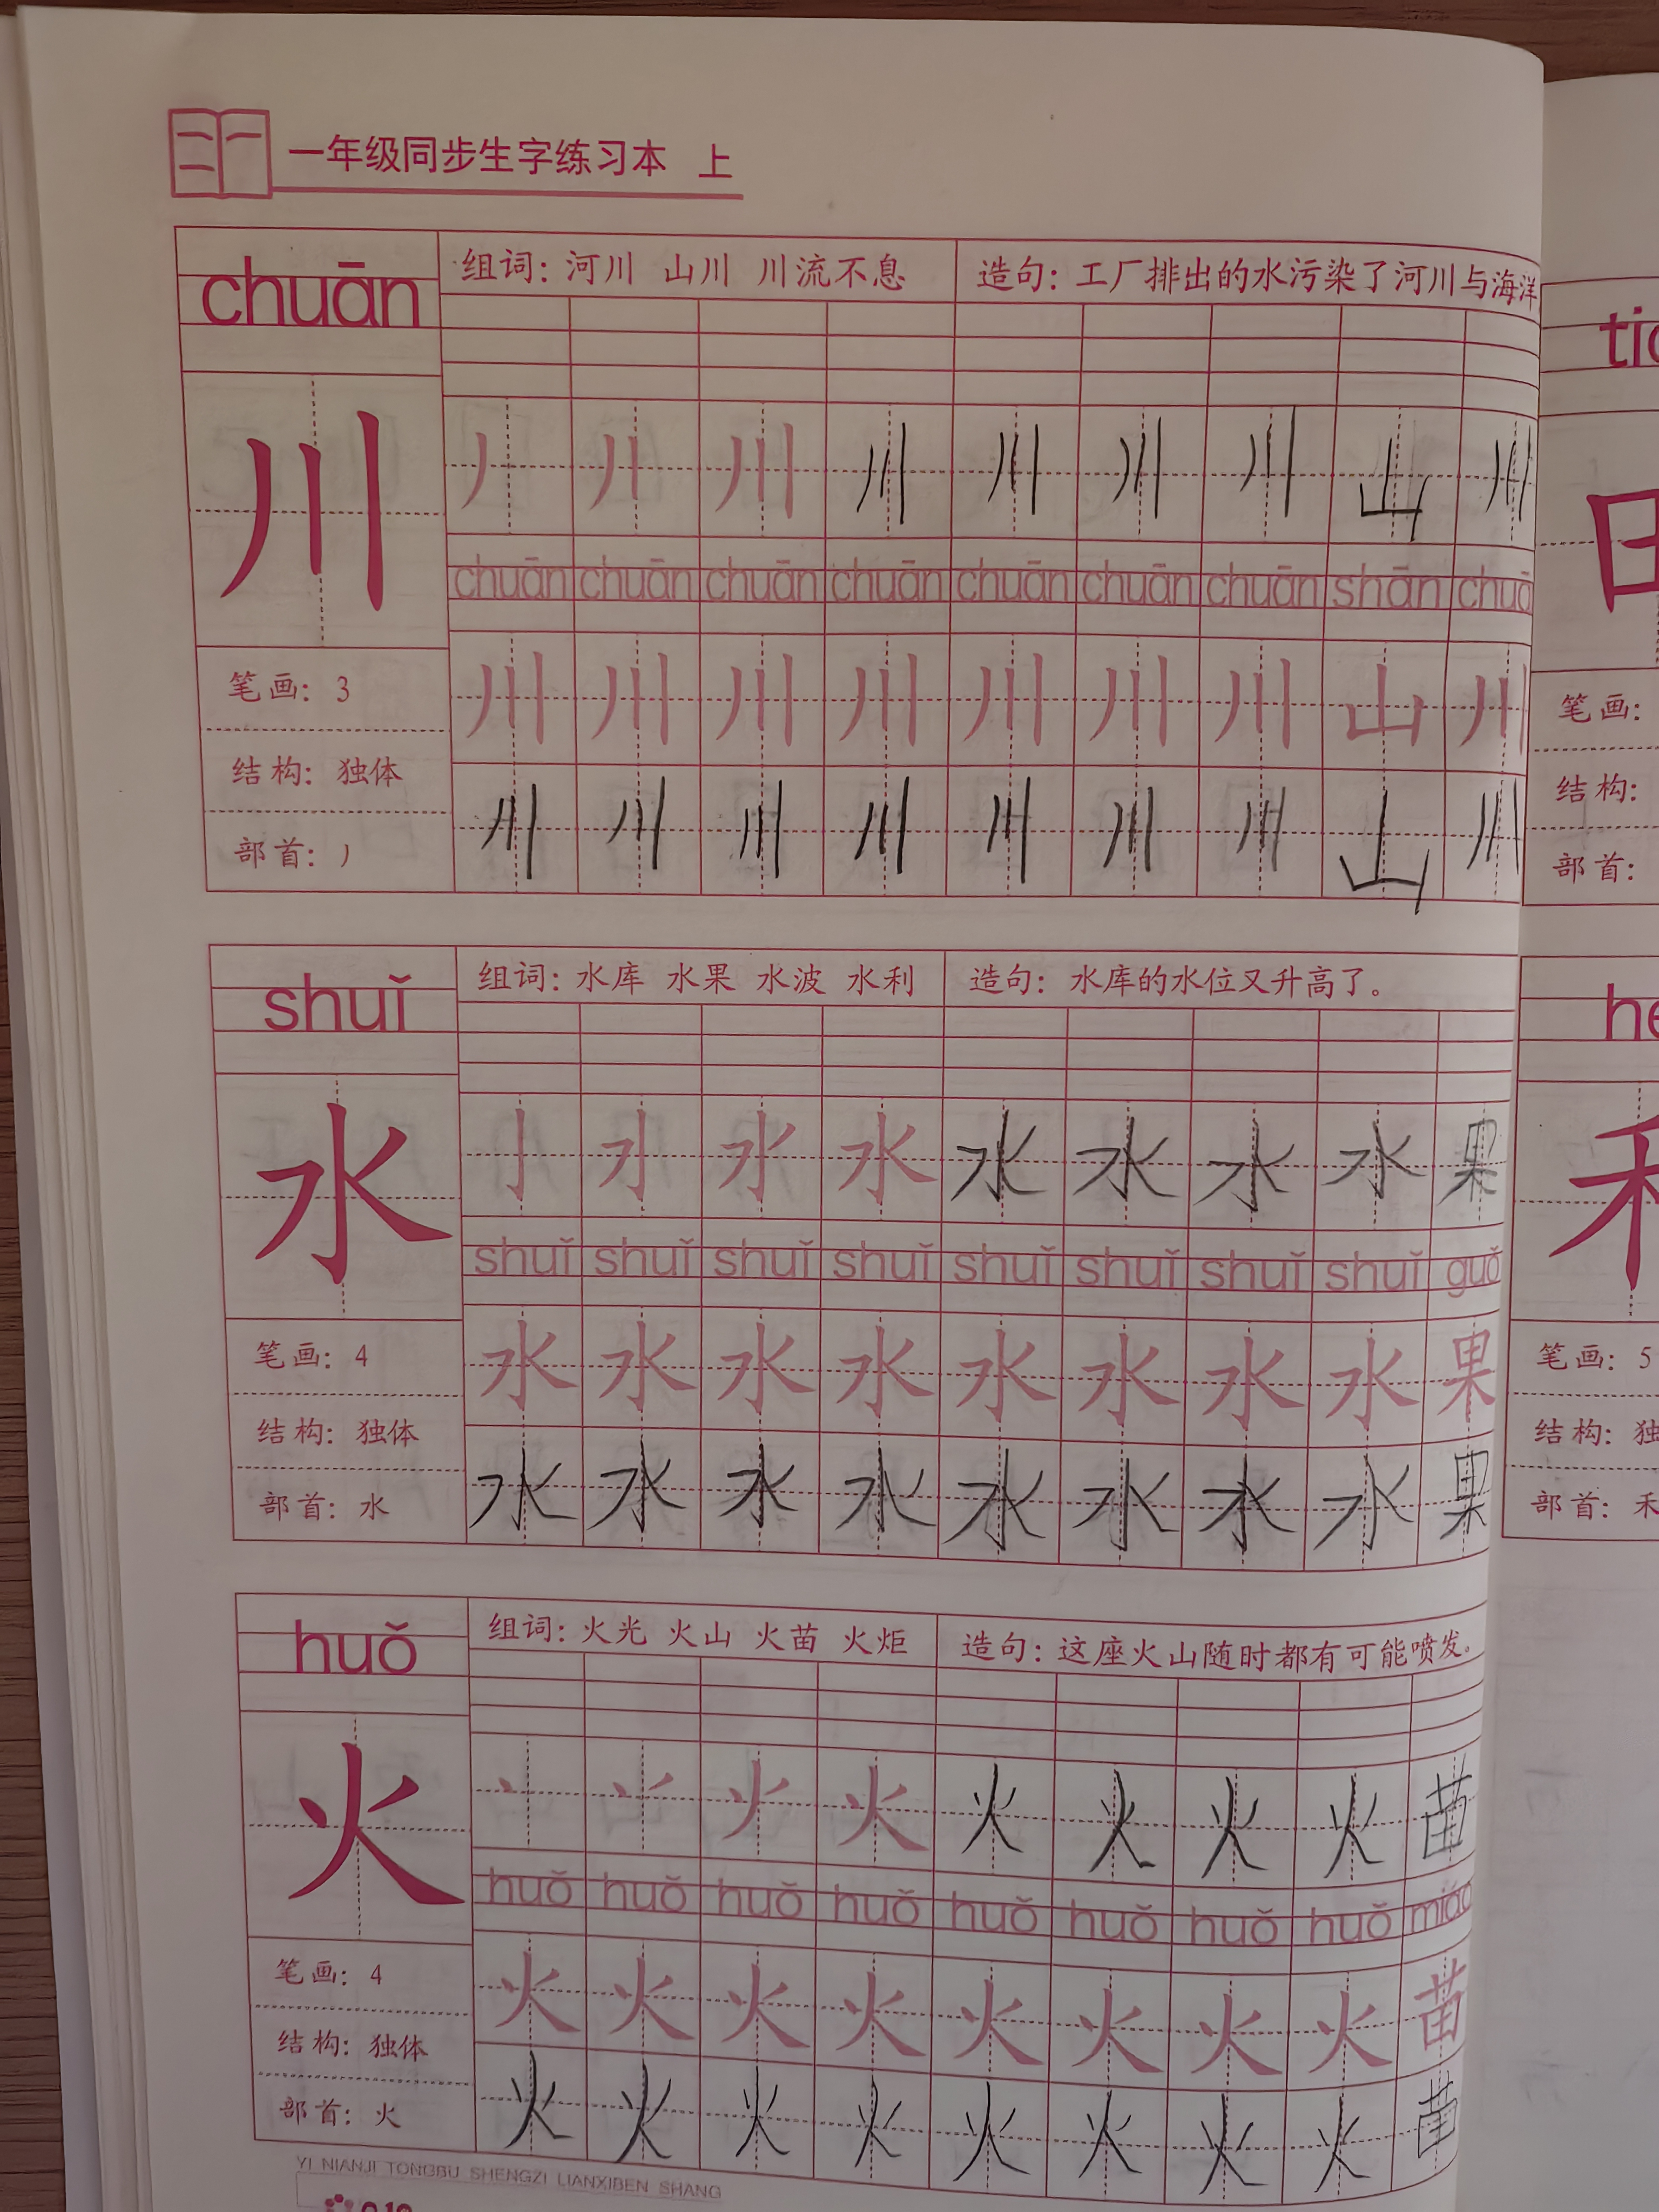 一年级同步生字练习本 上
chuān 组词：河川 山川 川流不息 造句：工厂排出的水污染了河川与海洋
川 丿 川 川 川 川 川 山 川
chuān chuān chuān chuān chuān chuān chuān shān
川 川 川 川 川 川 川 山 川
川 川 川 川 川 川 川 山 川
笔画：3
结构：独体
部首：丿
shuǐ 组词：水库 水果 水波 水利 造句：水库的水位又升高了。
水 水 水 水 水 水 果
shuǐ shuǐ shuǐ shuǐ shuǐ shuǐ shuǐ shuǐ guǒ
水 水 水 水 水 水 水 水 果
水 水 水 水 水 水 水 水 果
笔画：4
结构：独体
部首：水
huǒ 组词：火光 火山 火苗 火炬 造句：这座火山随时都有可能喷发。
火 火 火 火 火 火 苗
huǒ huǒ huǒ huǒ huǒ huǒ huǒ huǒ miáo
火 火 火 火 火 火 火 火 苗
火 火 火 火 火 火 火 火 苗
笔画：4
结构：独体
部首：火
YI NIANJI TONGBU SHENGZI LIANXIBEN SHANG
笔画：
结构：
部首：
禾
笔画：5
结构：独
部首：禾